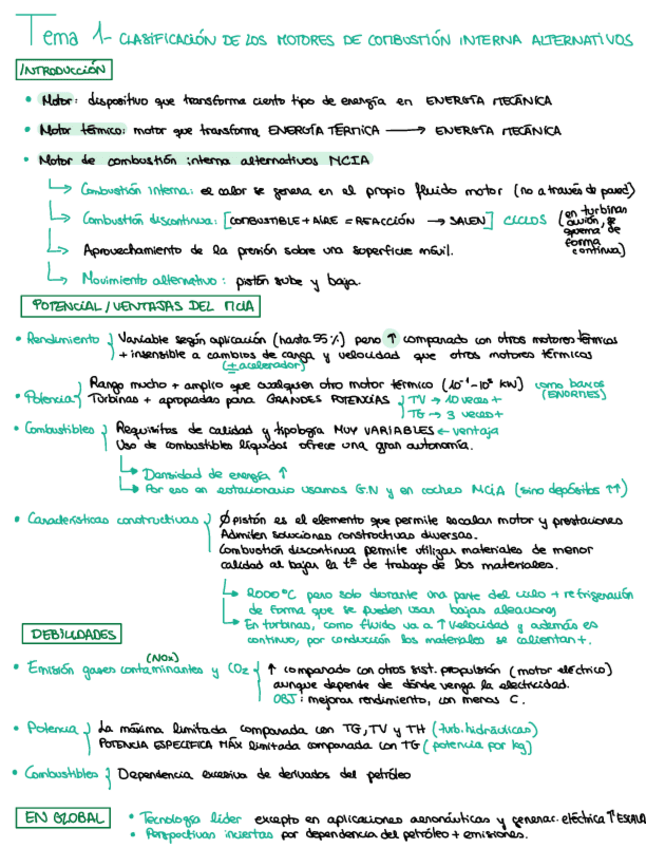 Tema 1- CLASIFICACIÓN DE LOS MOTORES DE COMBUSTIÓN INTERNA ALTERNATIVOS
INTRODUCCIÓN
• Motor: dispositivo que transforma cierto tipo de energía en ENERGÍA MECÁNICA
• Motor térmico: motor que transforma ENERGÍA TÉRMICA → ENERGÍA MECÁNICA
• Motor de combustión interna alternativos MCIA
↳ Combustión interna: el calor se genera en el propio fluido motor (no a través de pared)
↳ Combustión discontinua: [COMBUSTIBLE + AIRE = REACCIÓN → SALEN] CICLOS (en turbinas avión, se quema de forma continua)
↳ Aprovechamiento de la presión sobre una superficie móvil.
↳ Movimiento alternativo: pistón sube y baja.
POTENCIAL / VENTAJAS DEL MCIA
• Rendimiento } Variable según aplicación (hasta 55%) pero ↑ comparado con otros motores térmicos
+ insensible a cambios de carga y velocidad que otros motores térmicos
(± acelerador)
• Potencia } Rango mucho + amplio que cualquier otro motor térmico (10⁻¹-10⁵ kW) como barcos (ENORMES)
Turbinas + apropiadas para GRANDES POTENCIAS } TV → 10 veces +
TG → 3 veces +
• Combustibles } Requisitos de calidad y tipología MUY VARIABLES ← ventaja
Uso de combustibles líquidos ofrece una gran autonomía.
↳ Densidad de energía ↑
↳ Por eso en estacionario usamos G.N y en coches MCIA (sino depósitos ↑↑)
• Características constructivas } Ø pistón es el elemento que permite escalar motor y prestaciones
Admiten soluciones constructivas diversas.
Combustión discontinua permite utilizar materiales de menor
calidad al bajar la tª de trabajo de los materiales.
↳ 2000°C pero solo durante una parte del ciclo + refrigeración
de forma que se pueden usar bajas aleaciones
↳ En turbinas, como fluido va a ↑ velocidad y además es
continuo, por conducción los materiales se calientan +.
DEBILIDADES
(NOx)
• Emisión gases contaminantes y CO₂ } ↑ comparado con otros sist. propulsión (motor eléctrico)
aunque depende de dónde venga la electricidad.
OBJ: mejorar rendimiento, con menos C.
• Potencia } La máxima limitada comparada con TG, TV y TH (turb. hidráulicas)
POTENCIA ESPECÍFICA MÁX limitada comparada con TG (potencia por kg)
• Combustibles } Dependencia excesiva de derivados del petróleo
EN GLOBAL
• Tecnología líder excepto en aplicaciones aeronáuticas y generac. eléctrica ↑ ESCALA
• Perspectivas inciertas por dependencia del petróleo + emisiones.